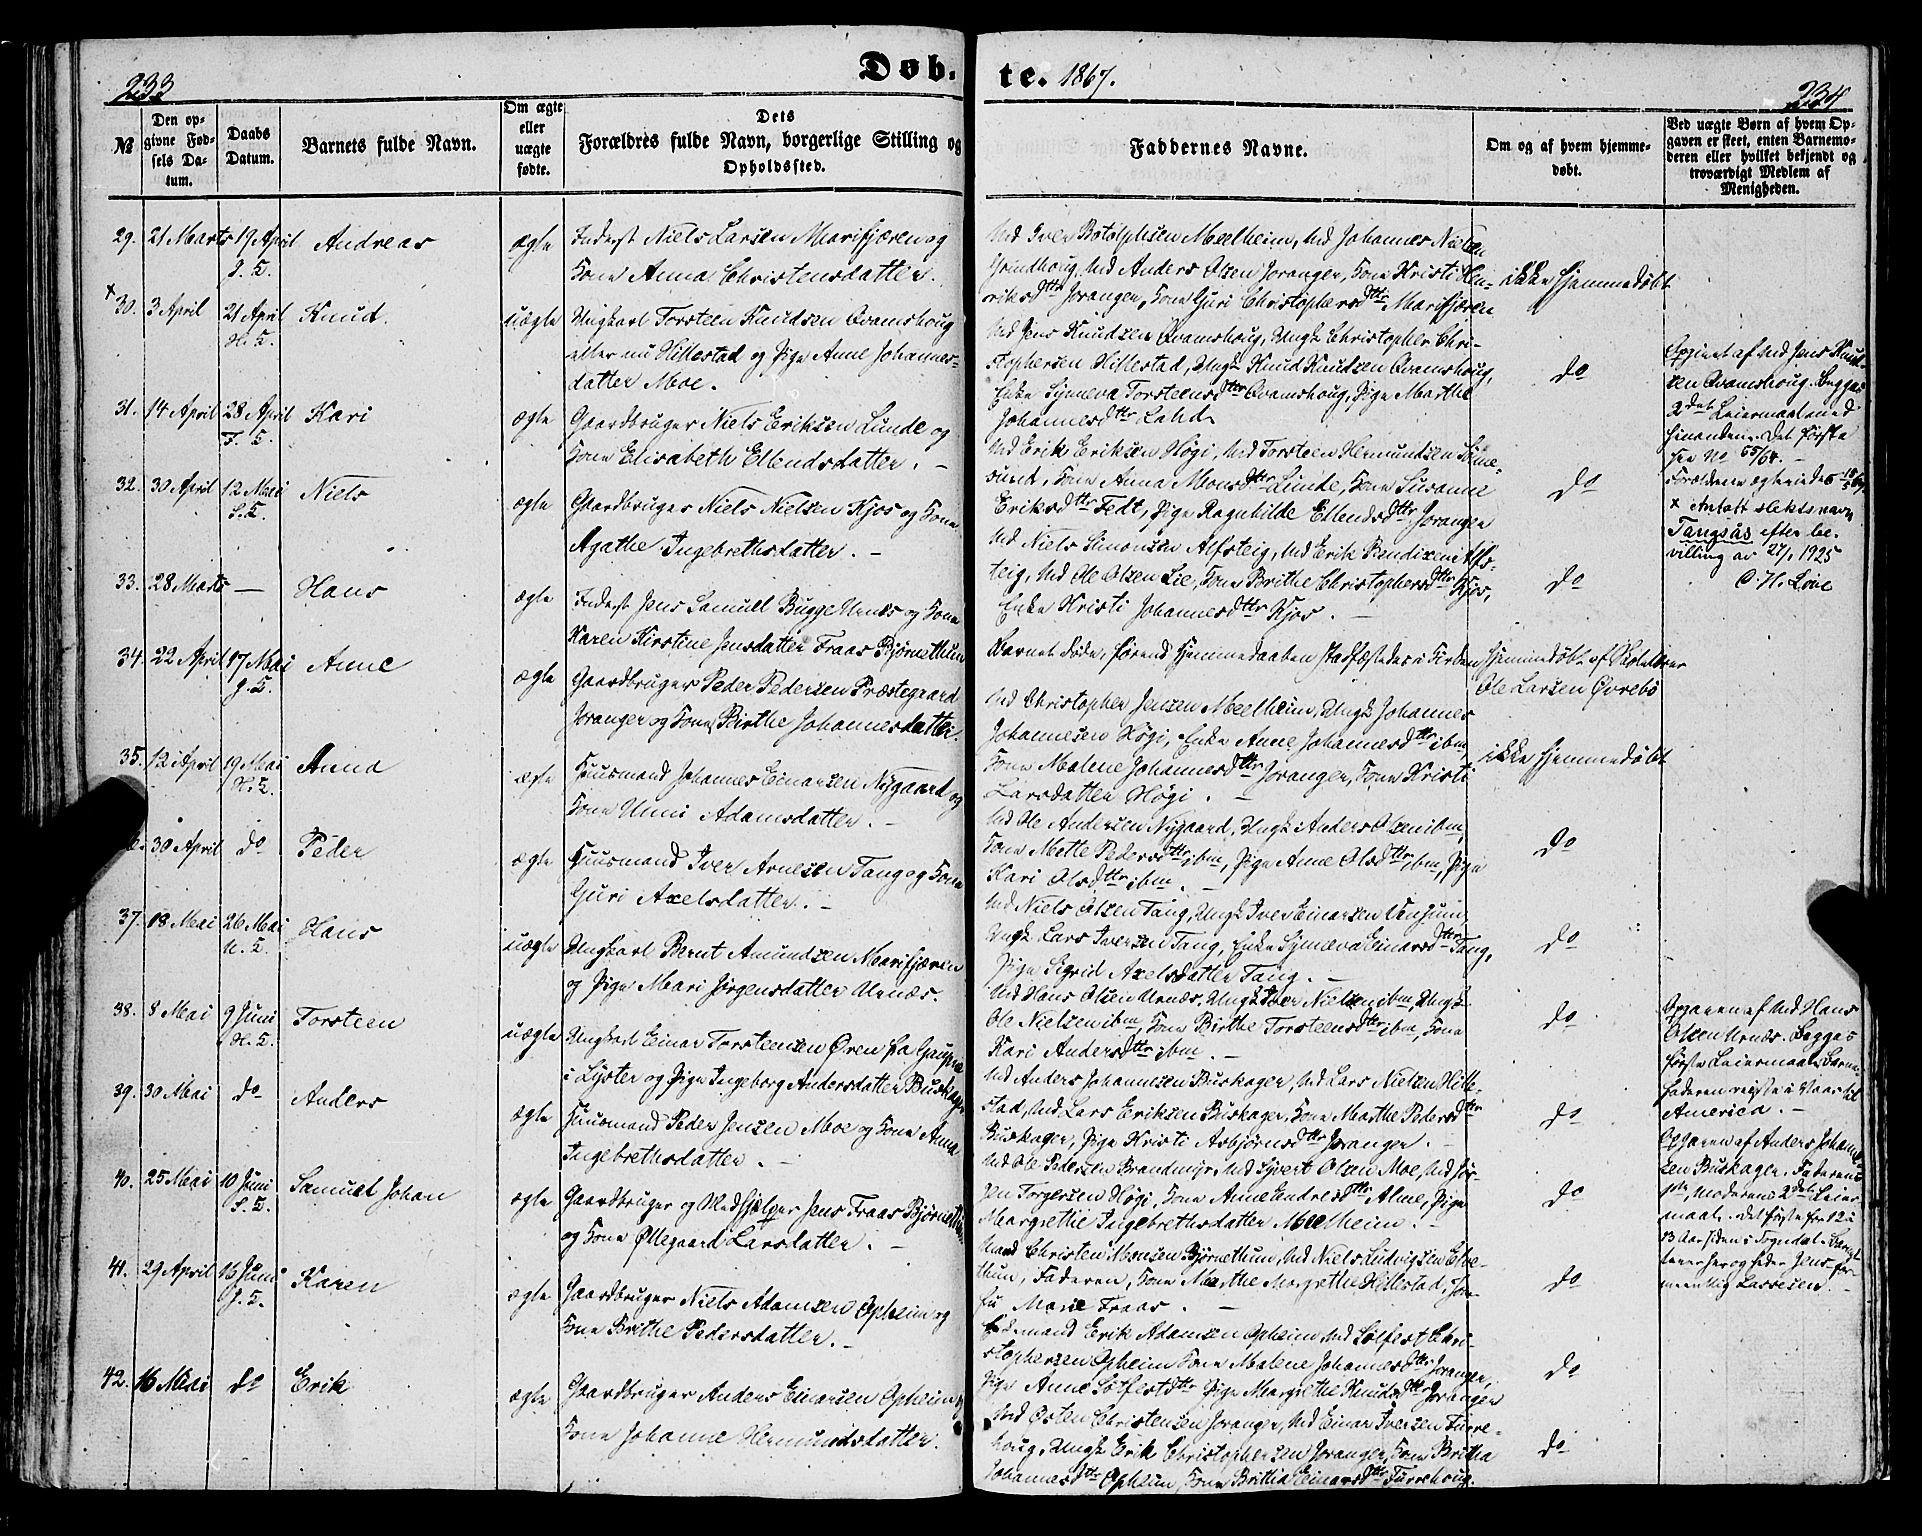 233
Døb-
te. 1867.
234
№
Den op-
givne Fød-
sels Da-
tum.
Daabs
Datum.
Barnets fulde Navn.
Om ægte
eller
uægte
fødte.
Dets
Forældres fulde Navn, borgerlige Stilling og
Opholdssted.
Faddernes Navne.
Om og af hvem hjemme-
døbt.
Ved uægte Børn af hvem Op-
gaven er skeet, enten Barnemo-
deren eller hvilket bekjendt og
troværdigt Medlem af
Menigheden.
29. 21 Marts 19 April Andreas ægte Inderst Niels Larsen Marifjæren og
J. K. Kone Anna Christensdatter.
Md Iver Botolphsen Meelheim, Md Johannes Nielsen
Grindhoug, Md Anders Olsen Joranger, Kone Kristi Hen-
riksdtr Joranger, Kone Guri Christophersdtr Marifjæren
ikke hjemmedøbt
x 30. 3 April 21 April Knud. uægte Ungkarl Torsteen Knudsen Qvamshoug
H. K. eller nu Hillestad og Pige Anne Johannes-
datter Moe.
Md Jens Knudsen Qvamshoug, Ungk Christopher Chri-
stophersen Hillestad, Ungk Knud Knudsen Qvamshoug,
Enke Synneva Torsteensdtr Qvamshoug, Pige Marthe
Johannesdtr Lahd
do
Opgivet af Md Jens Knud-
sen Qvamshoug. Begges
2det Leiermaal med
hinanden. Det første
see No 55/64.
Forældrene ægteviede
x Antatt slektsnavn
Tangsås efter be-
villing av 27/1 1925
C. H. Lone
31. 14 April 28 April Kari ægte Gaardbruger Niels Eriksen Lunde og
F. K. Kone Elisabeth Ellendsdatter.
Md Erik Eriksen Høgi, Md Torsteen Hermundsen
Kone Anna Monsdtr Lunde, Kone Susanne
Eriksdtr Fedt, Pige Ragnhilde Ellendsdtr Joranger
do
32. 30 April 12 Mai Niels ægte Gaardbruger Niels Nielsen Kjos og Kone
S. K. Agathe Ingebrethsdatter.
Md Niels Simonsen Alfsteig, Md Erik Bendixen Alfs-
teig, Md Ole Olsen Lie, Kone Brithe Christophersdtr Kjos,
Enke Kristi Johannesdtr Kjos.
do
33. 28 Marts — Hans ægte Inderst Jens Samuel Bugge Urnæs og Kone
Karen Kirstine Jensdatter Fraas Bjørnethun
Barnet døde, førend Hjemmedaaben stadfæstedes i Kirken
Hjemmedøbt af Skolelærer
Ole Larsen Øvrebø
34. 22 April 17 Mai Anne ægte Gaardbruger Peder Pedersen Præstegaard
J. K. Joranger og Kone Birthe Johannesdatter.
Md Christopher Jensen Meelheim, Ungk Johannes
Johannesen Høgi, Enke Anne Johannesdtr ibm,
Kone Malene Johannesdtr Joranger, Kone Kristi
Larsdatter Høgi.
ikke hjemmedøbt
35. 12 April 19 Mai Anna ægte Huusmand Johannes Einarsen Nygaard og
H. K. Kone Unni Adamsdatter.
Md Ole Andersen Nygaard, Ungk Anders Olsen ibm,
Kone Mette Pedersdtr ibm, Pige Anne Olsdtr ibm, Pige
Kari Olsdtr ibm.
do
30 April do Peder ægte Huusmand Iver Arnesen Tang og Kone
Guri Axelsdatter.
Md Niels Olsen Tang, Ungk Iver Einarsen
Ungk Lars Iversen Tang, Enke Synneva Einarsdtr Tang,
Pige Sigrid Axelsdatter Tang.
do
37. 18 Mai 26 Mai Hans uægte Ungkarl Bernt Amundsen Marifjæren
U. K. og Pige Mari Jørgensdatter Urnæs.
Md Hans Olsen Urnæs, Ungk Iver Nielsen ibm, Ungk
Ole Nielsen ibm, Kone Birthe Torsteensdtr ibm, Kone
Kari Andersdtr ibm.
do
Opgaven af Md Hans
Olsen Urnæs. Begges
første Leiermaal. Barne-
faderen reiste i Vaar til
America.
38. 8 Mai 9 Juni Torsteen uægte Ungkarl Einar Torsteensen Øren fra Gaupne
H. K. i Lyster og Pige Ingeborg Andersdatter Buskager
Md Anders Johannesen Buskager, Md Lars Nielsen Hille-
stad, Md Lars Eriksen Buskager, Kone Marthe Pedersdtr
Buskager, Pige Kristi Asbjørnsdtr Joranger.
do
Opgaven af Anders Johanne-
sen Buskager. Faderens
1ste, Moderens 2det Leier-
maal. Det første for 12 a
13 Aar siden i Sogndal.
39. 30 Mai do Anders ægte Huusmand Peder Jensen Moe og Kone Anna
Ingebrethsdatter.
Md Ole Pedersen Brandmyr, Md Syvert Olsen Moe, Md Jør-
gen Torgersen Høgi, Kone Anne Endresdtr Alme, Pige
Margrethe Ingebrethsdatter Meelheim.
do
40. 25 Mai 10 Juni Samuel Johan ægte Gaardbruger og Medhjelper Jens Fraas Bjørnethun
S. K. og Kone Øllegaard Larsdatter.
Md Christen Monsen Bjørnethun, Md Niels Ludvigsen Elve-
thun, Faderen, Kone Marthe Margrethe Hillestad, Jom-
fru Marie Fraas.
do
41. 29 April 13 Juni Karen ægte Gaardbruger Niels Adamsen Opheim og
J. K. Kone Brithe Pedersdatter.
Erik Adamsen Opheim, Md Solfest Chri-
stophersen Opheim, Kone Malene Johannesdtr Joranger,
Pige Anne Solfestdtr, Pige Margrethe Knudsdtr Joranger
do
42. 16 Mai do Erik ægte Gaardbruger Anders Einarsen Opheim og
Kone Johanne Hermundsdatter.
Md Østen Christensen Joranger, Md Einar Iversen Furre-
houg, Ungk Erik Christophersen Joranger, Kone Brithe
Johannesdtr Opheim, Kone Brithe Einarsdtr Furrehoug.
do